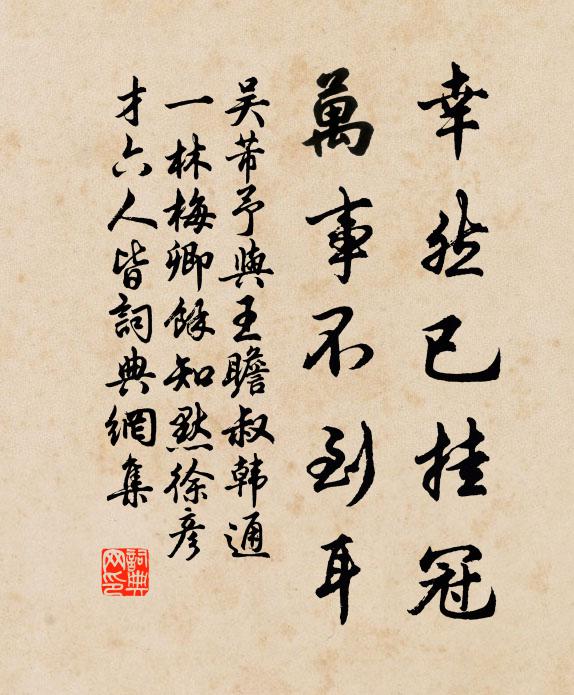 幸然已挂冠
萬事不到耳
吴芾予與王瞻叔韩通
一林梅卿餘知點徐彦
才六人皆詞典網集
詞典网印